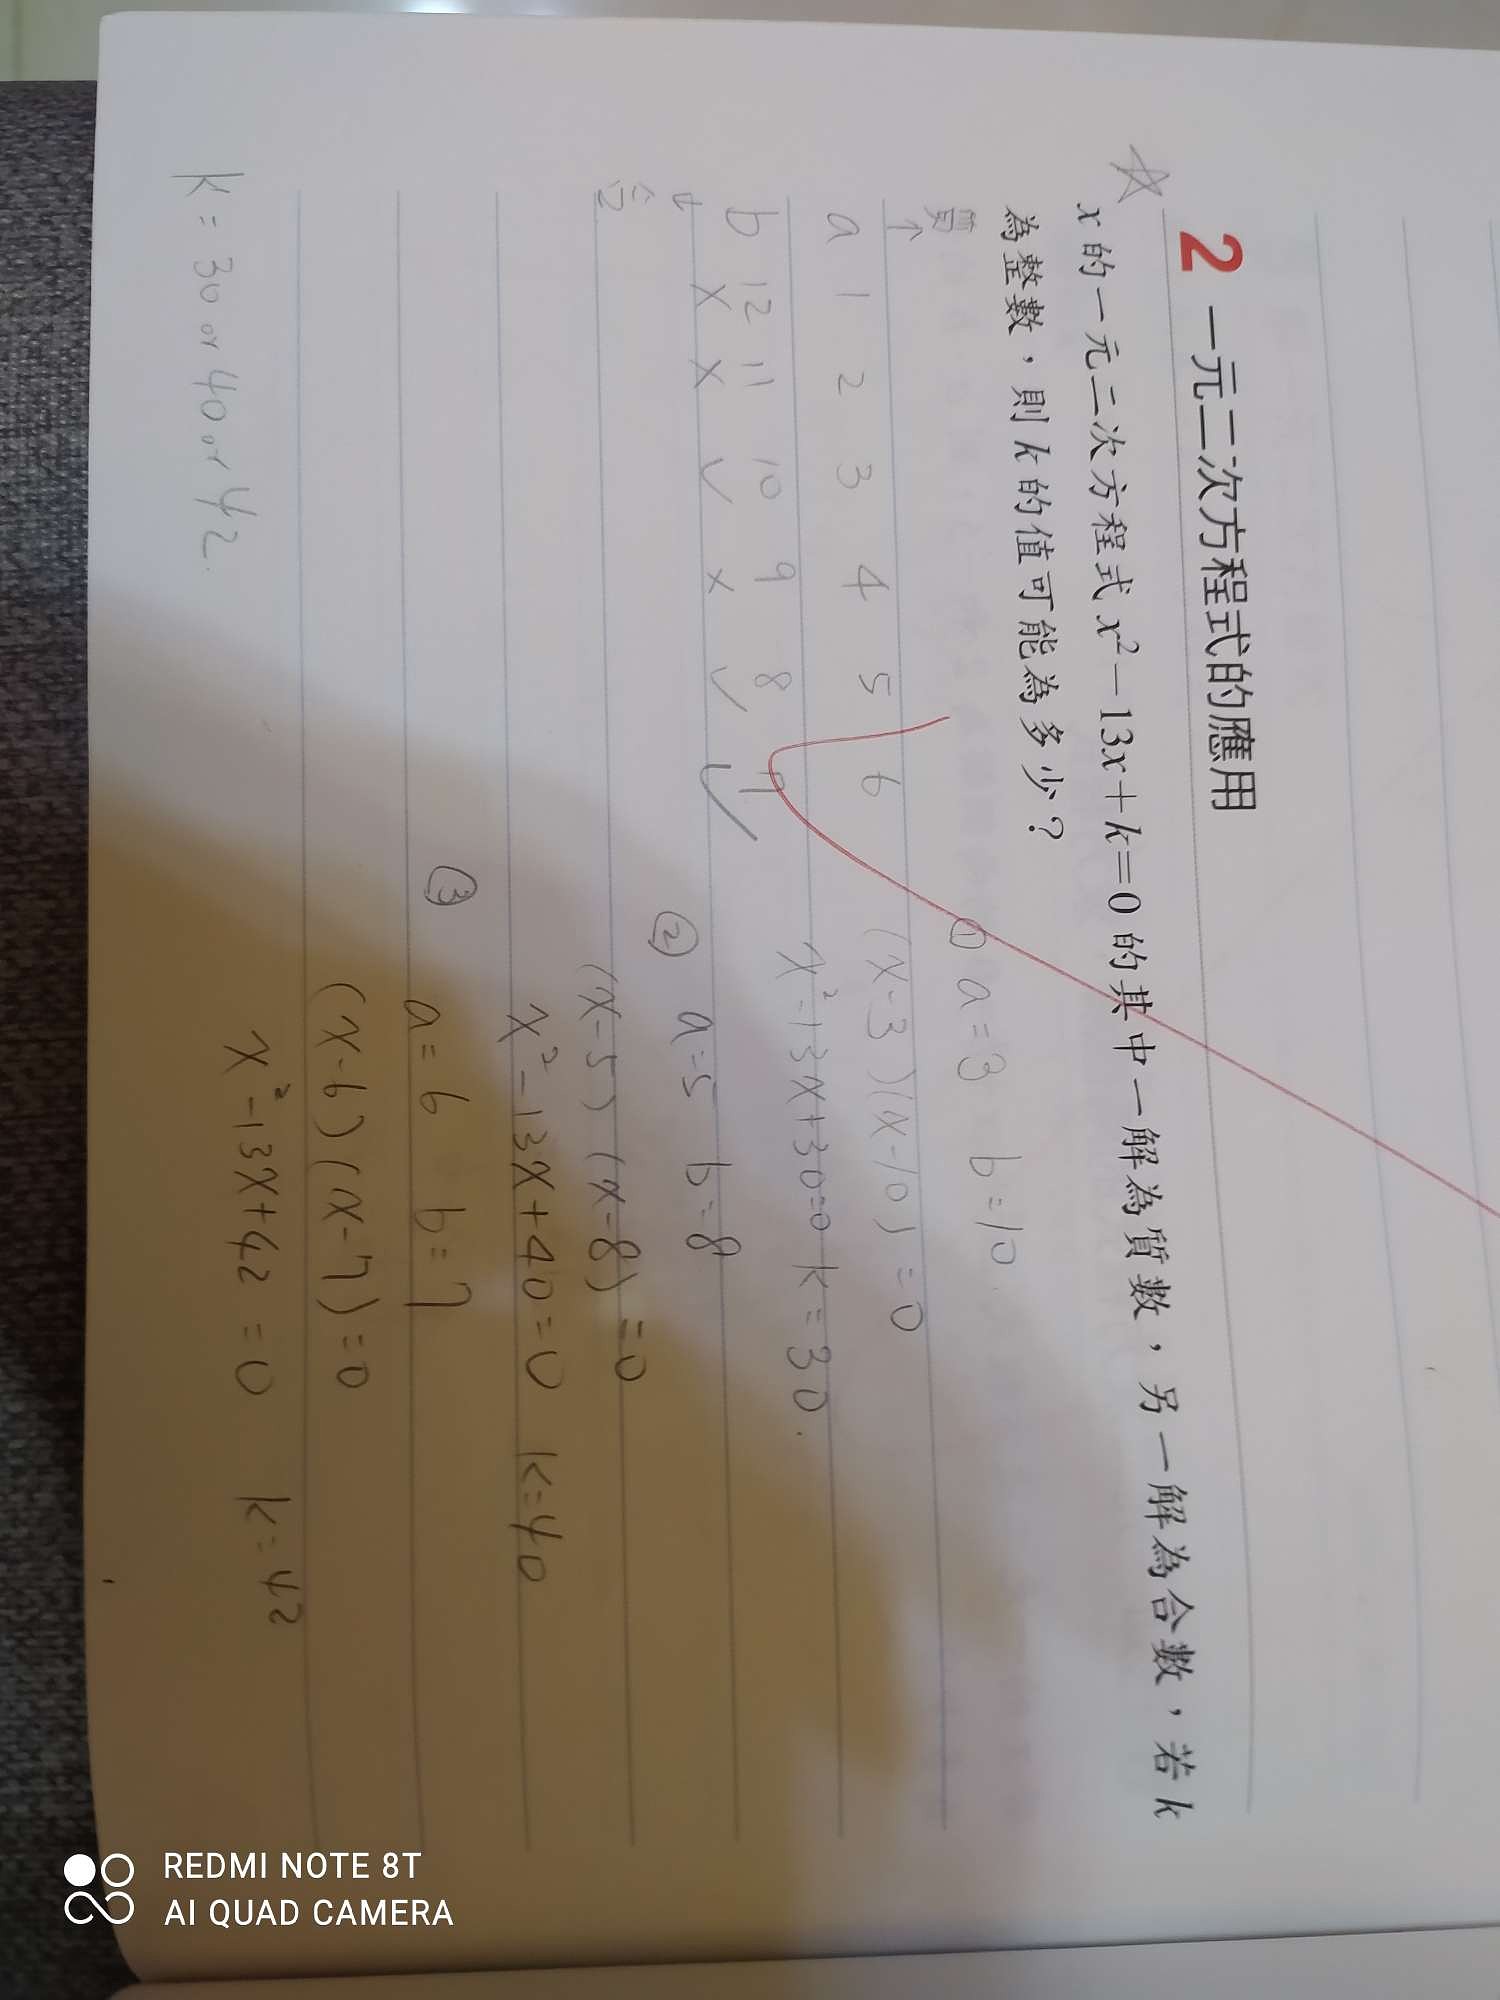 2 一元二次方程式的應用
☆
x 的一元二次方程式 x²－13x＋k＝0 的其中一解為質數，另一解為合數，若 k
為整數，則 k 的值可能為多少？
質
↑
a 1 2 3 4 5 6
b 12 11 10 9 8 7
↓ × × ✓ × ✓ ✓
合
① a=3 b=10
(x-3)(x-10)=0
x²-13x+30=0 k=30.
② a=5 b=8
(x-5)(x-8)=0
x²-13x+40=0 k=40
③ a=6 b=7
(x-6)(x-7)=0
x²-13x+42=0 k=42
k=30 or 40 or 42.
REDMI NOTE 8T
AI QUAD CAMERA